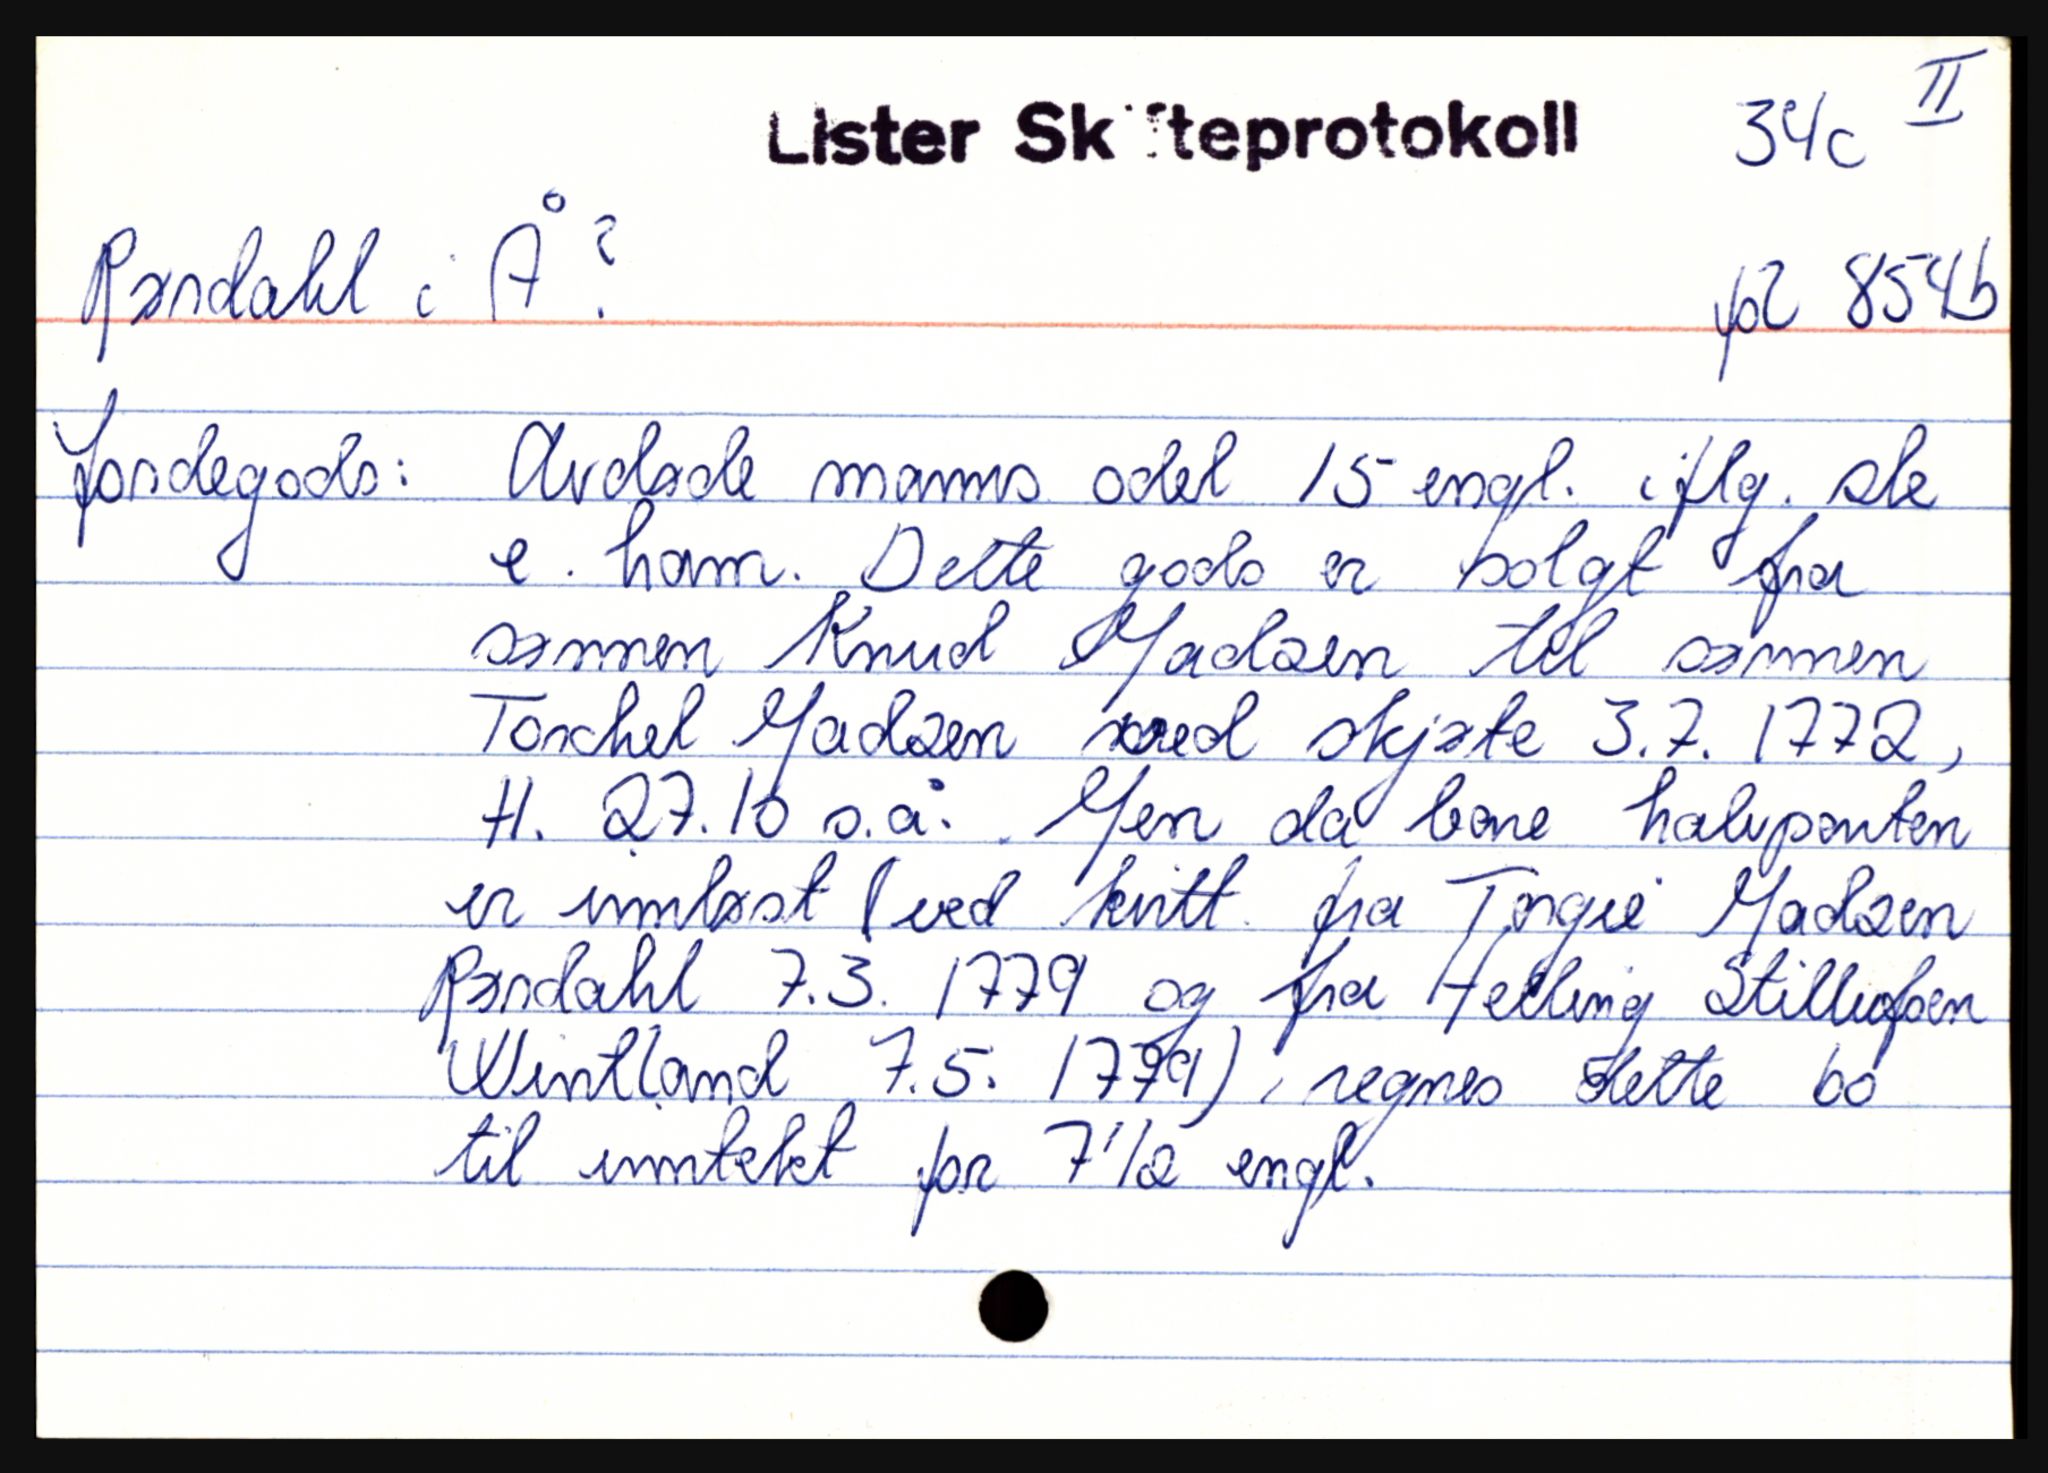 Lister Skifteprotokoll 34c II
Rørdahl i Å? fol 854b
Jordegods: Avdøde manns odel 15 engl. iflg. ske
e. ham. Dette gods er solgt fra
sønnen Knud Madsen til sønnen
Torchel Madsen ved skjøte 3.7. 1772,
tl. 27.10 s.å. Men da bare halvparten
er innløst (ved kvitt. fra Torgie Madsen
Rørdahl 7.3. 1779 og fra Helling Stillufsen
Wintland 7.5. 1779), regnes dette bo
til inntekt for 7 1/2 engl.